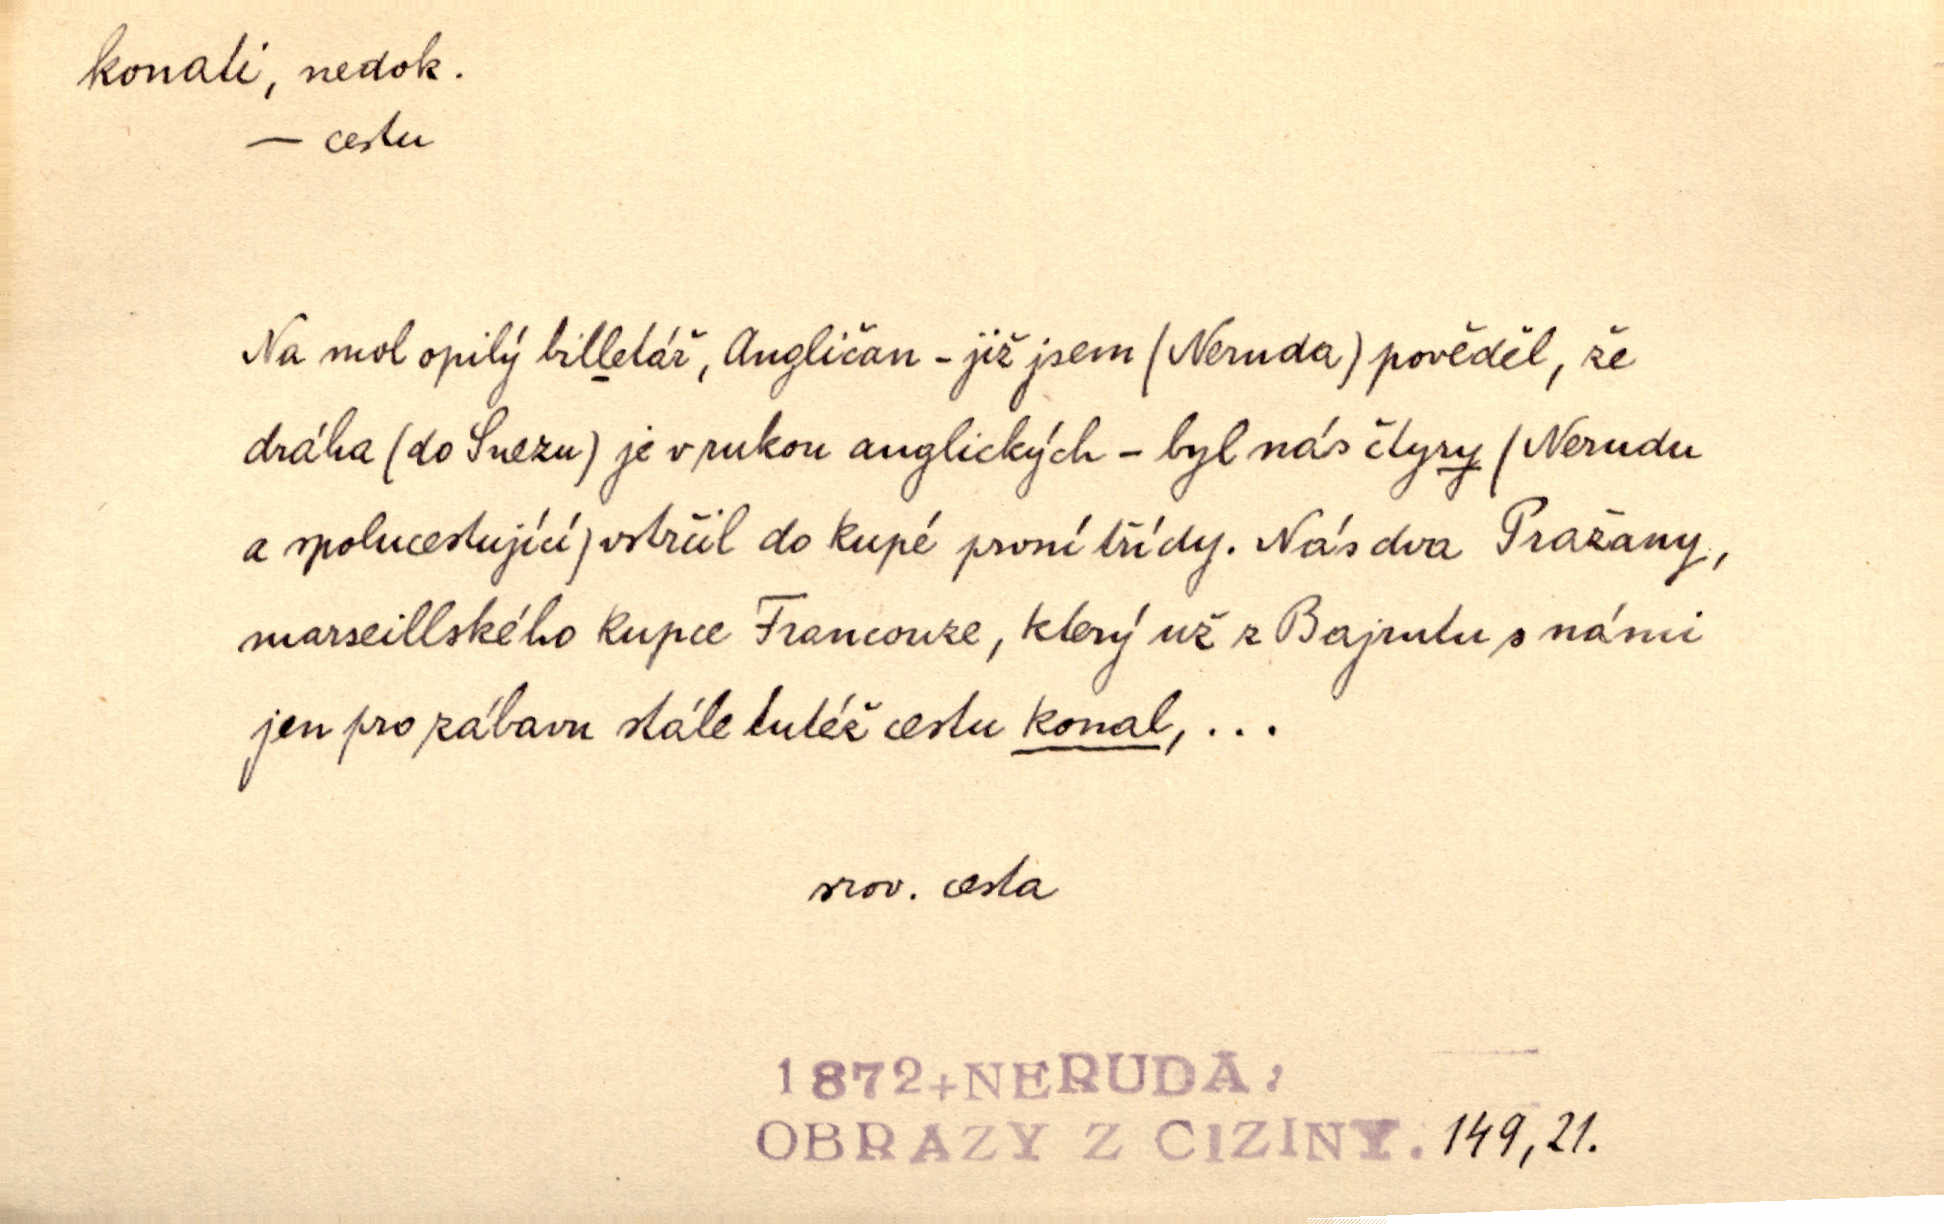 konati, nedok.
— cestu
Na mol opilý billetář, Angličan – již jsem (Neruda) pověděl, že
dráha (do Suezu) je v rukou anglických – byl nás čtyry (Nerudu
a spolucestující) vstrčil do kupé první třídy. Nás dva Pražany,
marseillského kupce Francouze, který už z Bajrutu s námi
jen pro zábavu stále tutéž cestu konal, ...
srov. cesta
1872+NERUDA;
OBRAZY Z CIZINY. 149,21.